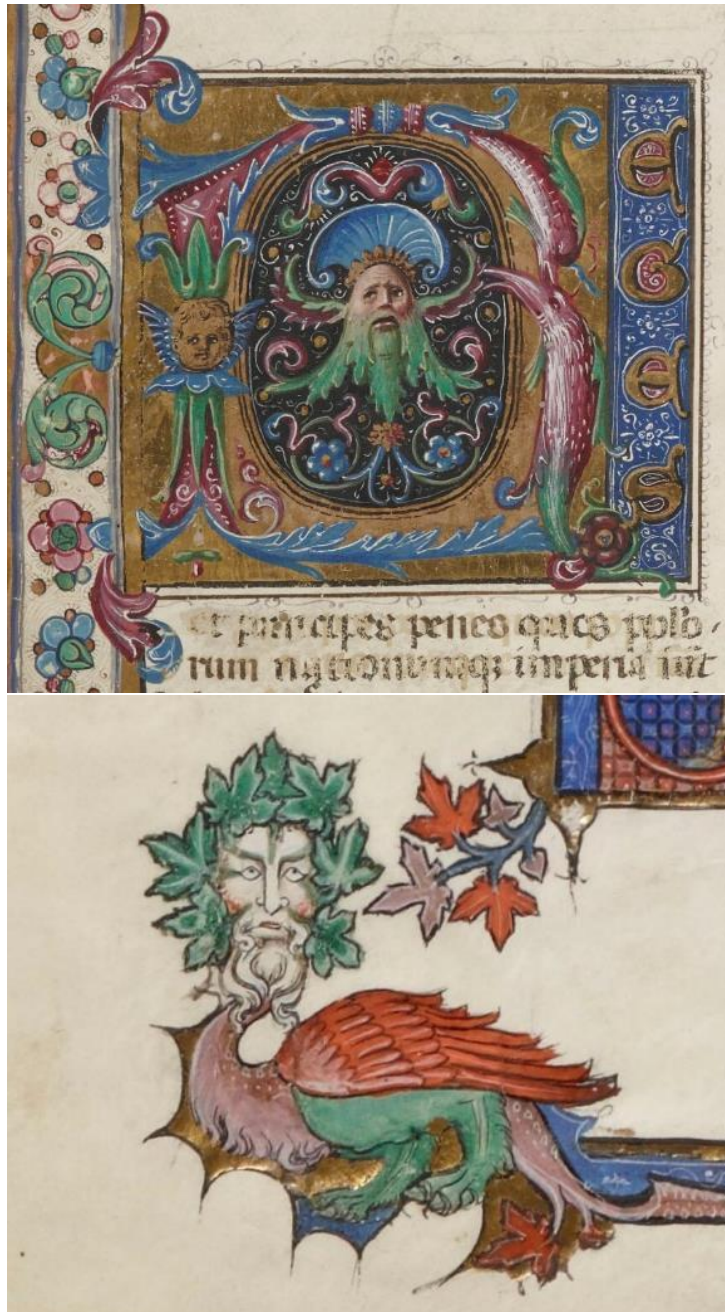 REGES
et principes penes quos pplo
rum nationumq; imperia sūt